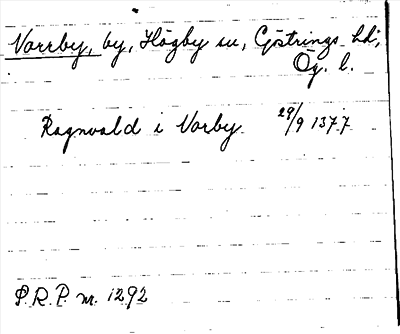 Norrby, by, Högby sn, Göstrings hd,
Ög. l.
Ragnvald i Norby 29/9 1377
P.R.P. nr. 1292